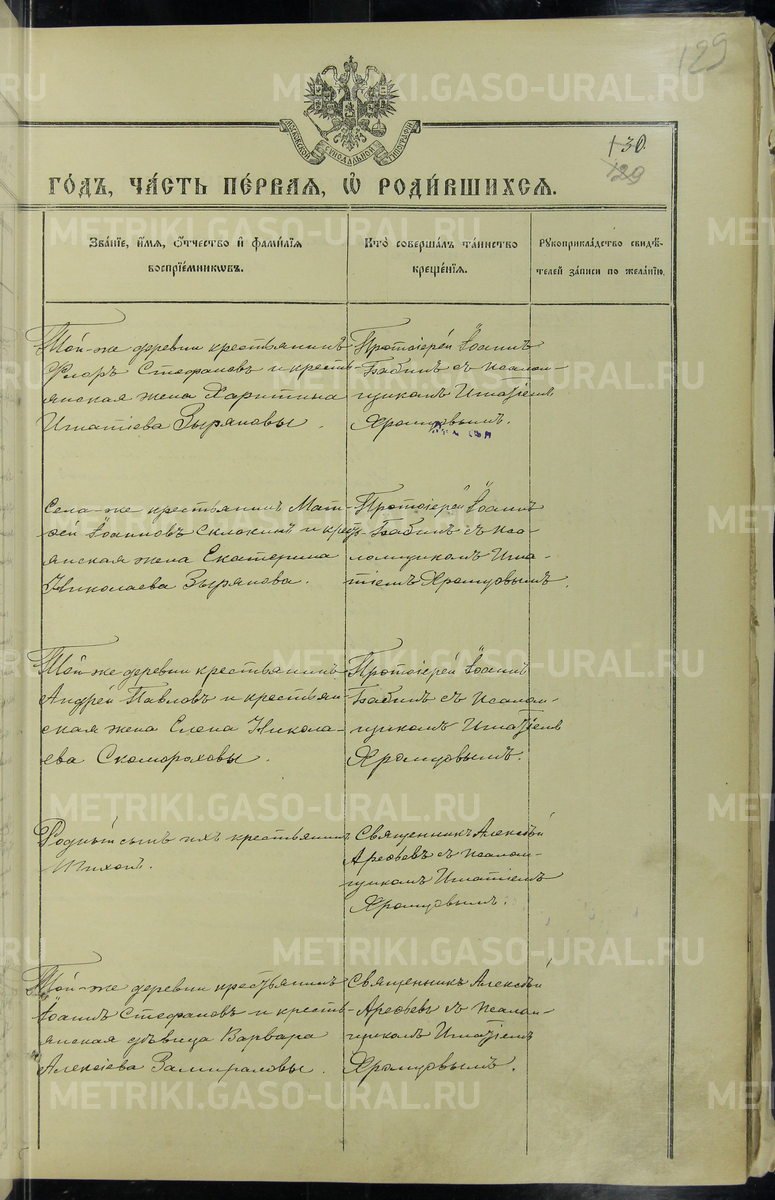 129
130.
129
МОСКОВСКОЙ СѴНОДАЛЬНОЙ ТИПОГРАФІИ
ГО́ДЪ, ЧА́СТЬ ПЕ́РВАЯ, Ѽ РОДИ́ВШИХСЯ.
Зва́нїе, и҆́мѧ, ѻ҆́тчество и҆ фами́лїѧ
воспрїе́мникѡвъ.
Кто̀ соверша́лъ та́инство
креще́нїѧ.
Рꙋкоприкла́дство свидѣ́-
телей за́писи по жела́нїю.
Той-же деревни крестьянинъ
Флоръ Стефановъ и кресть-
янская жена Харитина
Игнатіева Зыряновы.
Протоіерей Іоаннъ
Бабинъ съ псалом-
щикомъ Игнатіемъ
Храмцовымъ.
Села-же крестьянинъ Мат-
ѳей Іоанновъ и крест-
янская жена Екатерина
Николаева Зырянова.
Протоіерей Іоаннъ
Бабинъ съ пса-
ломщикомъ Игна-
тіемъ Храмцовымъ.
Той-же деревни крестьянинъ
Андрей Павловъ и крестьян-
ская жена Елена Никола-
ева Скомороховы.
Протоіерей Іоаннъ
Бабинъ съ псалом-
щикомъ Игнатіемъ
Храмцовымъ.
Родный сынъ ихъ крестьянинъ
Тихонъ.
Священникъ Алексѣй
Арефьевъ съ псалом-
щикомъ Игнатіемъ
Храмцовымъ.
Той-же деревни крестьянинъ
Іоаннъ Стефановъ и кресть-
янская дѣвица Варвара
Алексіева Замираловы.
Священникъ Алексѣй
Арефьевъ съ псалом-
щикомъ Игнатіемъ
Храмцовымъ.
METRIKI.GASO-URAL.RU